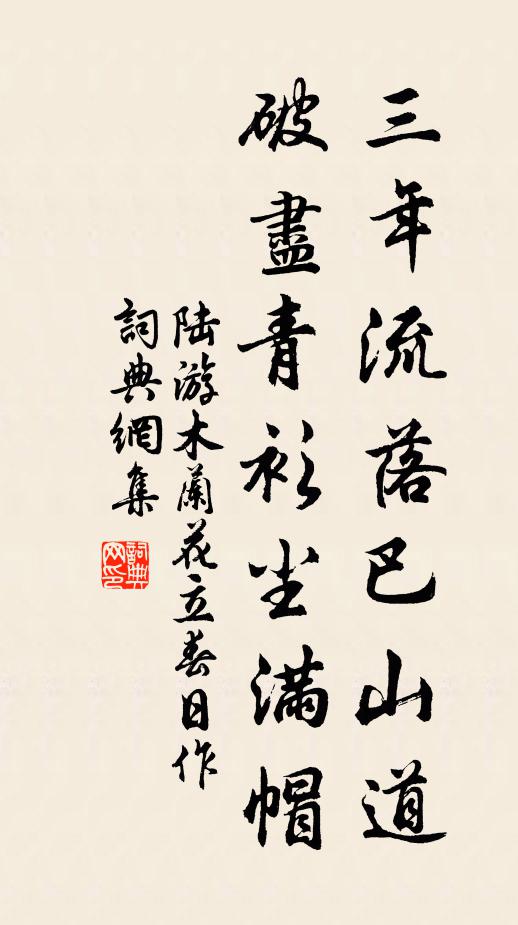 三年流落巴山道
破盡青衫尘满帽
陆游木蘭花立春日作
詞典網集
詞典网印